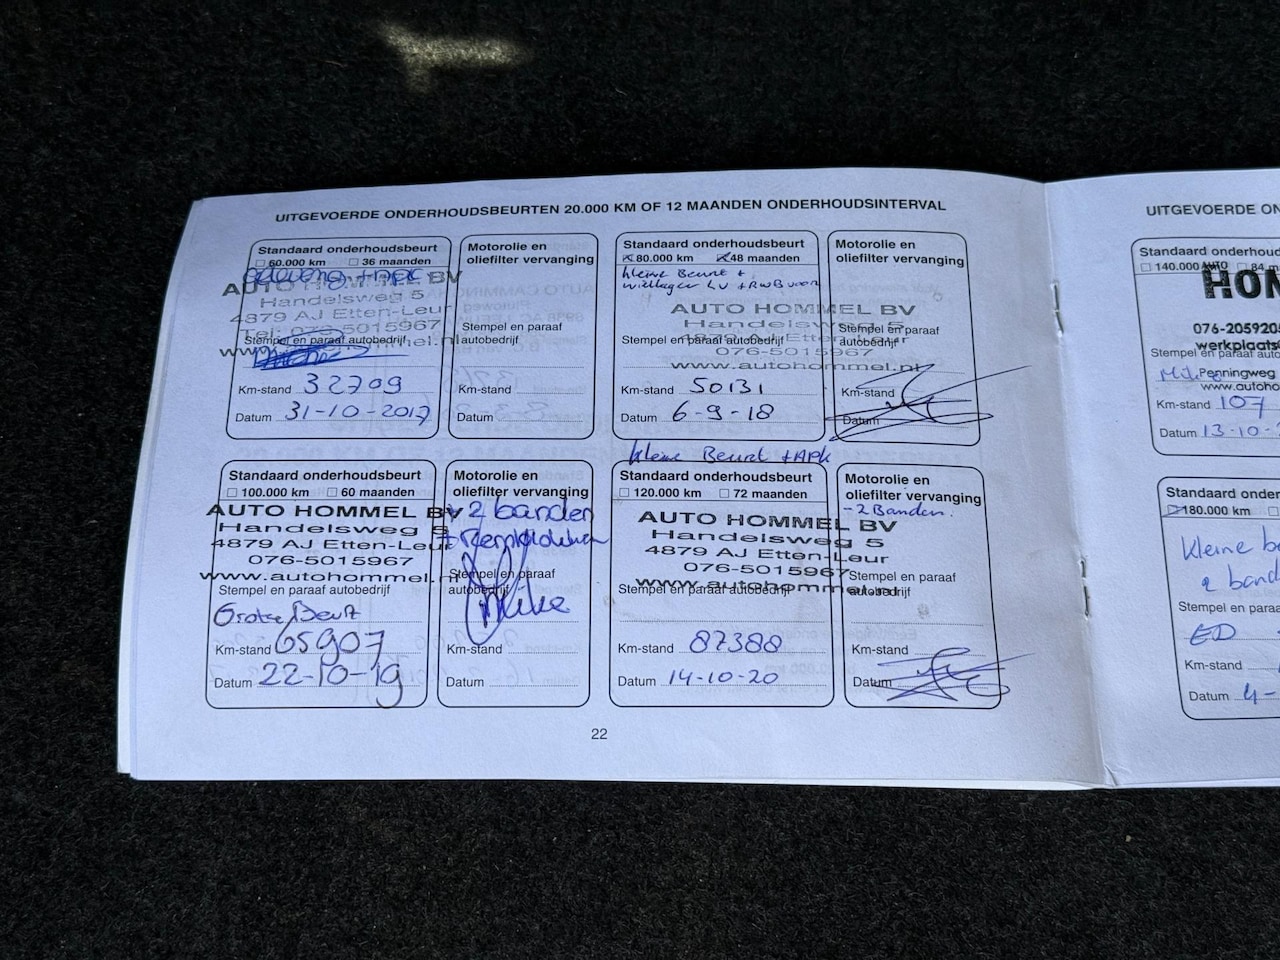 UITGEVOERDE ONDERHOUDSBEURTEN 20.000 KM OF 12 MAANDEN ONDERHOUDSINTERVAL
Standaard onderhoudsbeurt
60.000 km 36 maanden
AUTO HOMMEL BV
Handelsweg 5
4879 AJ Etten-Leur
Tel: 076-5015967
www.autohommel.nl
Stempel en paraaf autobedrijf
Km-stand 32709
Datum 31-10-2017
Motorolie en
oliefilter vervanging
Stempel en paraaf
autobedrijf
Km-stand
Datum
Standaard onderhoudsbeurt
80.000 km 48 maanden
kleine Beurt +
wiellager LV +
AUTO HOMMEL BV
Handelsweg 5
076-5015967
www.autohommel.nl
Stempel en paraaf autobedrijf
Km-stand 50131
Datum 6-9-18
Motorolie en
oliefilter vervanging
Stempel en paraaf
autobedrijf
Km-stand
Datum
Standaard onderhoudsbeurt
100.000 km 60 maanden
AUTO HOMMEL BV
Handelsweg 5
4879 AJ Etten-Leur
076-5015967
www.autohommel.nl
Stempel en paraaf autobedrijf
Grote Beurt
Km-stand 65907
Datum 22-10-19
Motorolie en
oliefilter vervanging
+ 2 banden
Stempel en paraaf
autobedrijf
Mike
Km-stand
Datum
kleine Beurt + APK
Standaard onderhoudsbeurt
120.000 km 72 maanden
AUTO HOMMEL BV
Handelsweg 5
4879 AJ Etten-Leur
076-5015967
www.autohommel.nl
Stempel en paraaf autobedrijf
Km-stand 87388
Datum 14-10-20
Motorolie en
oliefilter vervanging
- 2 Banden.
Stempel en paraaf
autobedrijf
Km-stand
Datum
22
UITGEVOERDE ON
Standaard onderhoud
140.000 84 m
AUTO
HOM
076-205920
werkplaats@
Stempel en paraaf auto
Penningweg
www.autoho
Km-stand 107
Datum 13-10-
Standaard onder
180.000 km
kleine be
2 band
Stempel en paraa
ED
Km-stand
Datum 4-